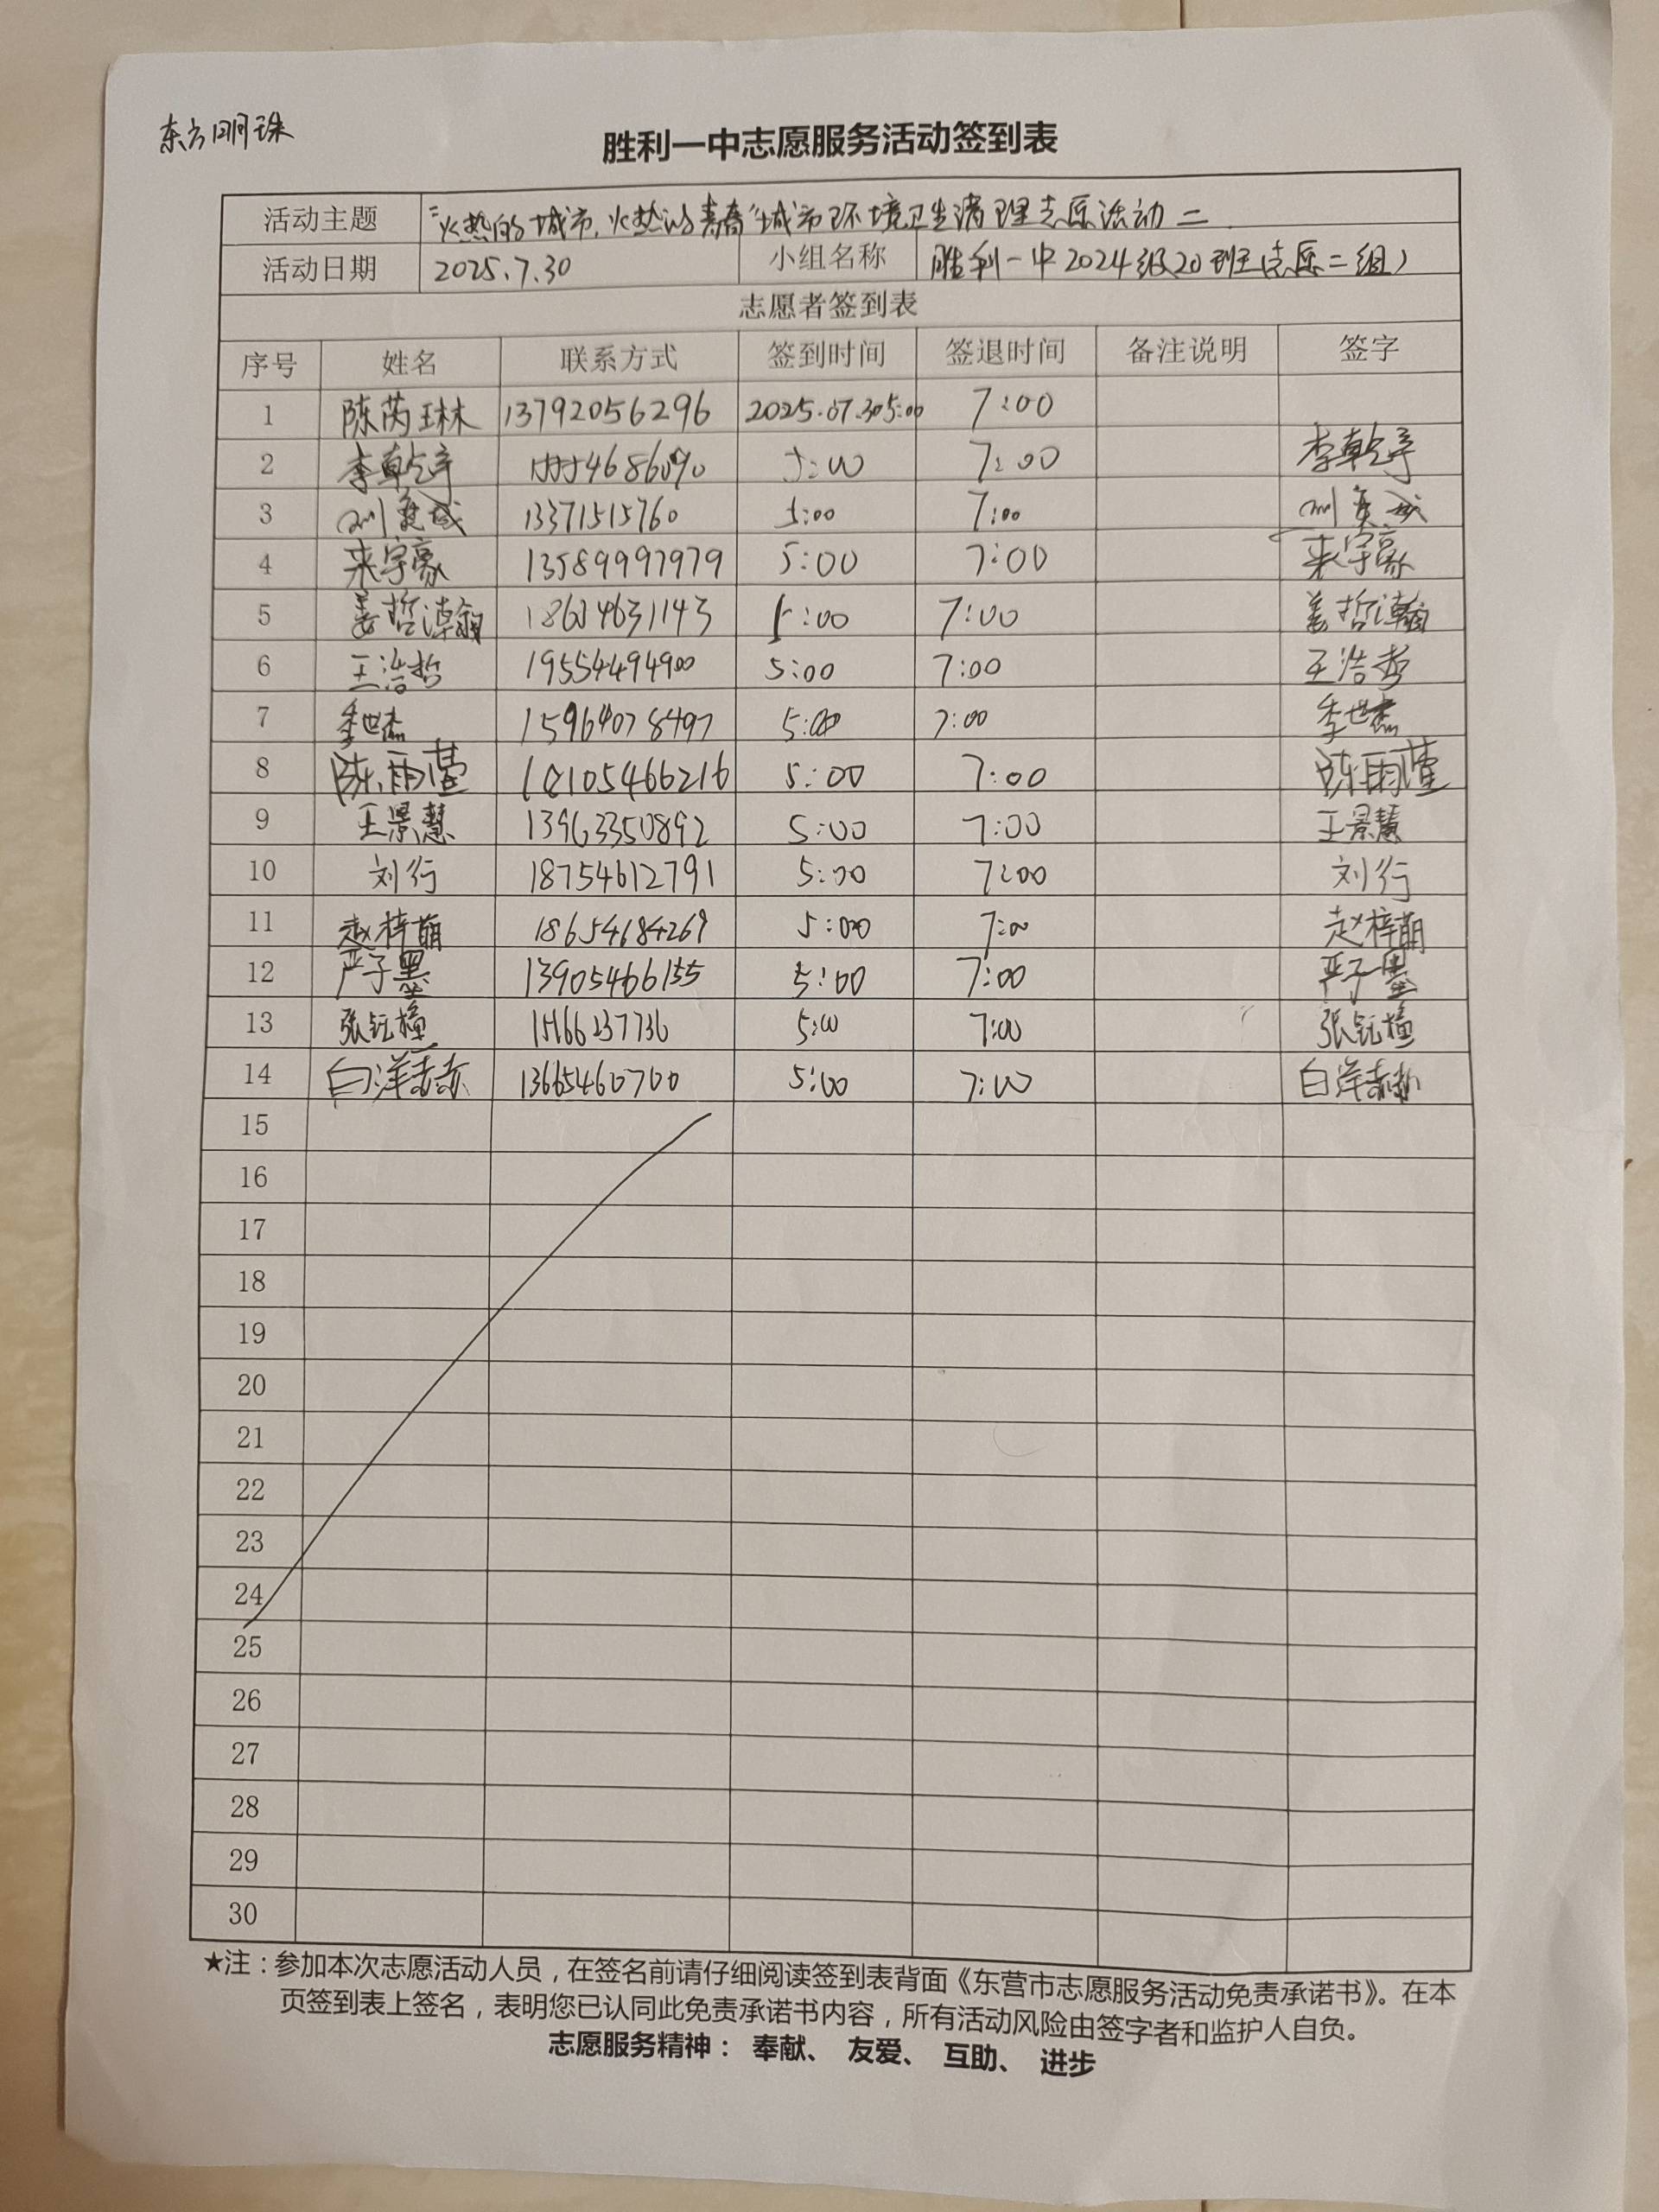 东方明珠
胜利一中志愿服务活动签到表
活动主题 “火热的城市,火热的青春”城市环境卫生清理志愿活动二
活动日期 2025.7.30 小组名称 胜利一中2024级20班(志愿二组)
志愿者签到表
序号 姓名 联系方式 签到时间 签退时间 备注说明 签字
1 陈芮琳 13792056296 2025.07.30 5:00 7:00
2 李乾宇 5:00 7:00 李乾宇
3 13371515760 5:00 7:00
4 来宇豪 13589997979 5:00 7:00 来宇豪
5 姜哲瀚 5:00 7:00 姜哲瀚
6 王浩哲 19554494900 5:00 7:00 王浩哲
7 李世杰 15964078497 5:00 7:00 李世杰
8 陈雨萱 5:00 7:00 陈雨萱
9 王景慧 13963350892 5:00 7:00 王景慧
10 刘行 18754612791 5:00 7:00 刘行
11 赵梓萌 18654684269 5:00 7:00 赵梓萌
12 严子墨 13905466155 5:00 7:00 严子墨
13 张钰橦 5:00 7:00 张钰橦
14 白洋赫 13665460700 5:00 7:00 白洋赫
15
16
17
18
19
20
21
22
23
24
25
26
27
28
29
30
★注:参加本次志愿活动人员,在签名前请仔细阅读签到表背面《东营市志愿服务活动免责承诺书》。在本
页签到表上签名,表明您已认同此免责承诺书内容,所有活动风险由签字者和监护人自负。
志愿服务精神: 奉献、 友爱、 互助、 进步